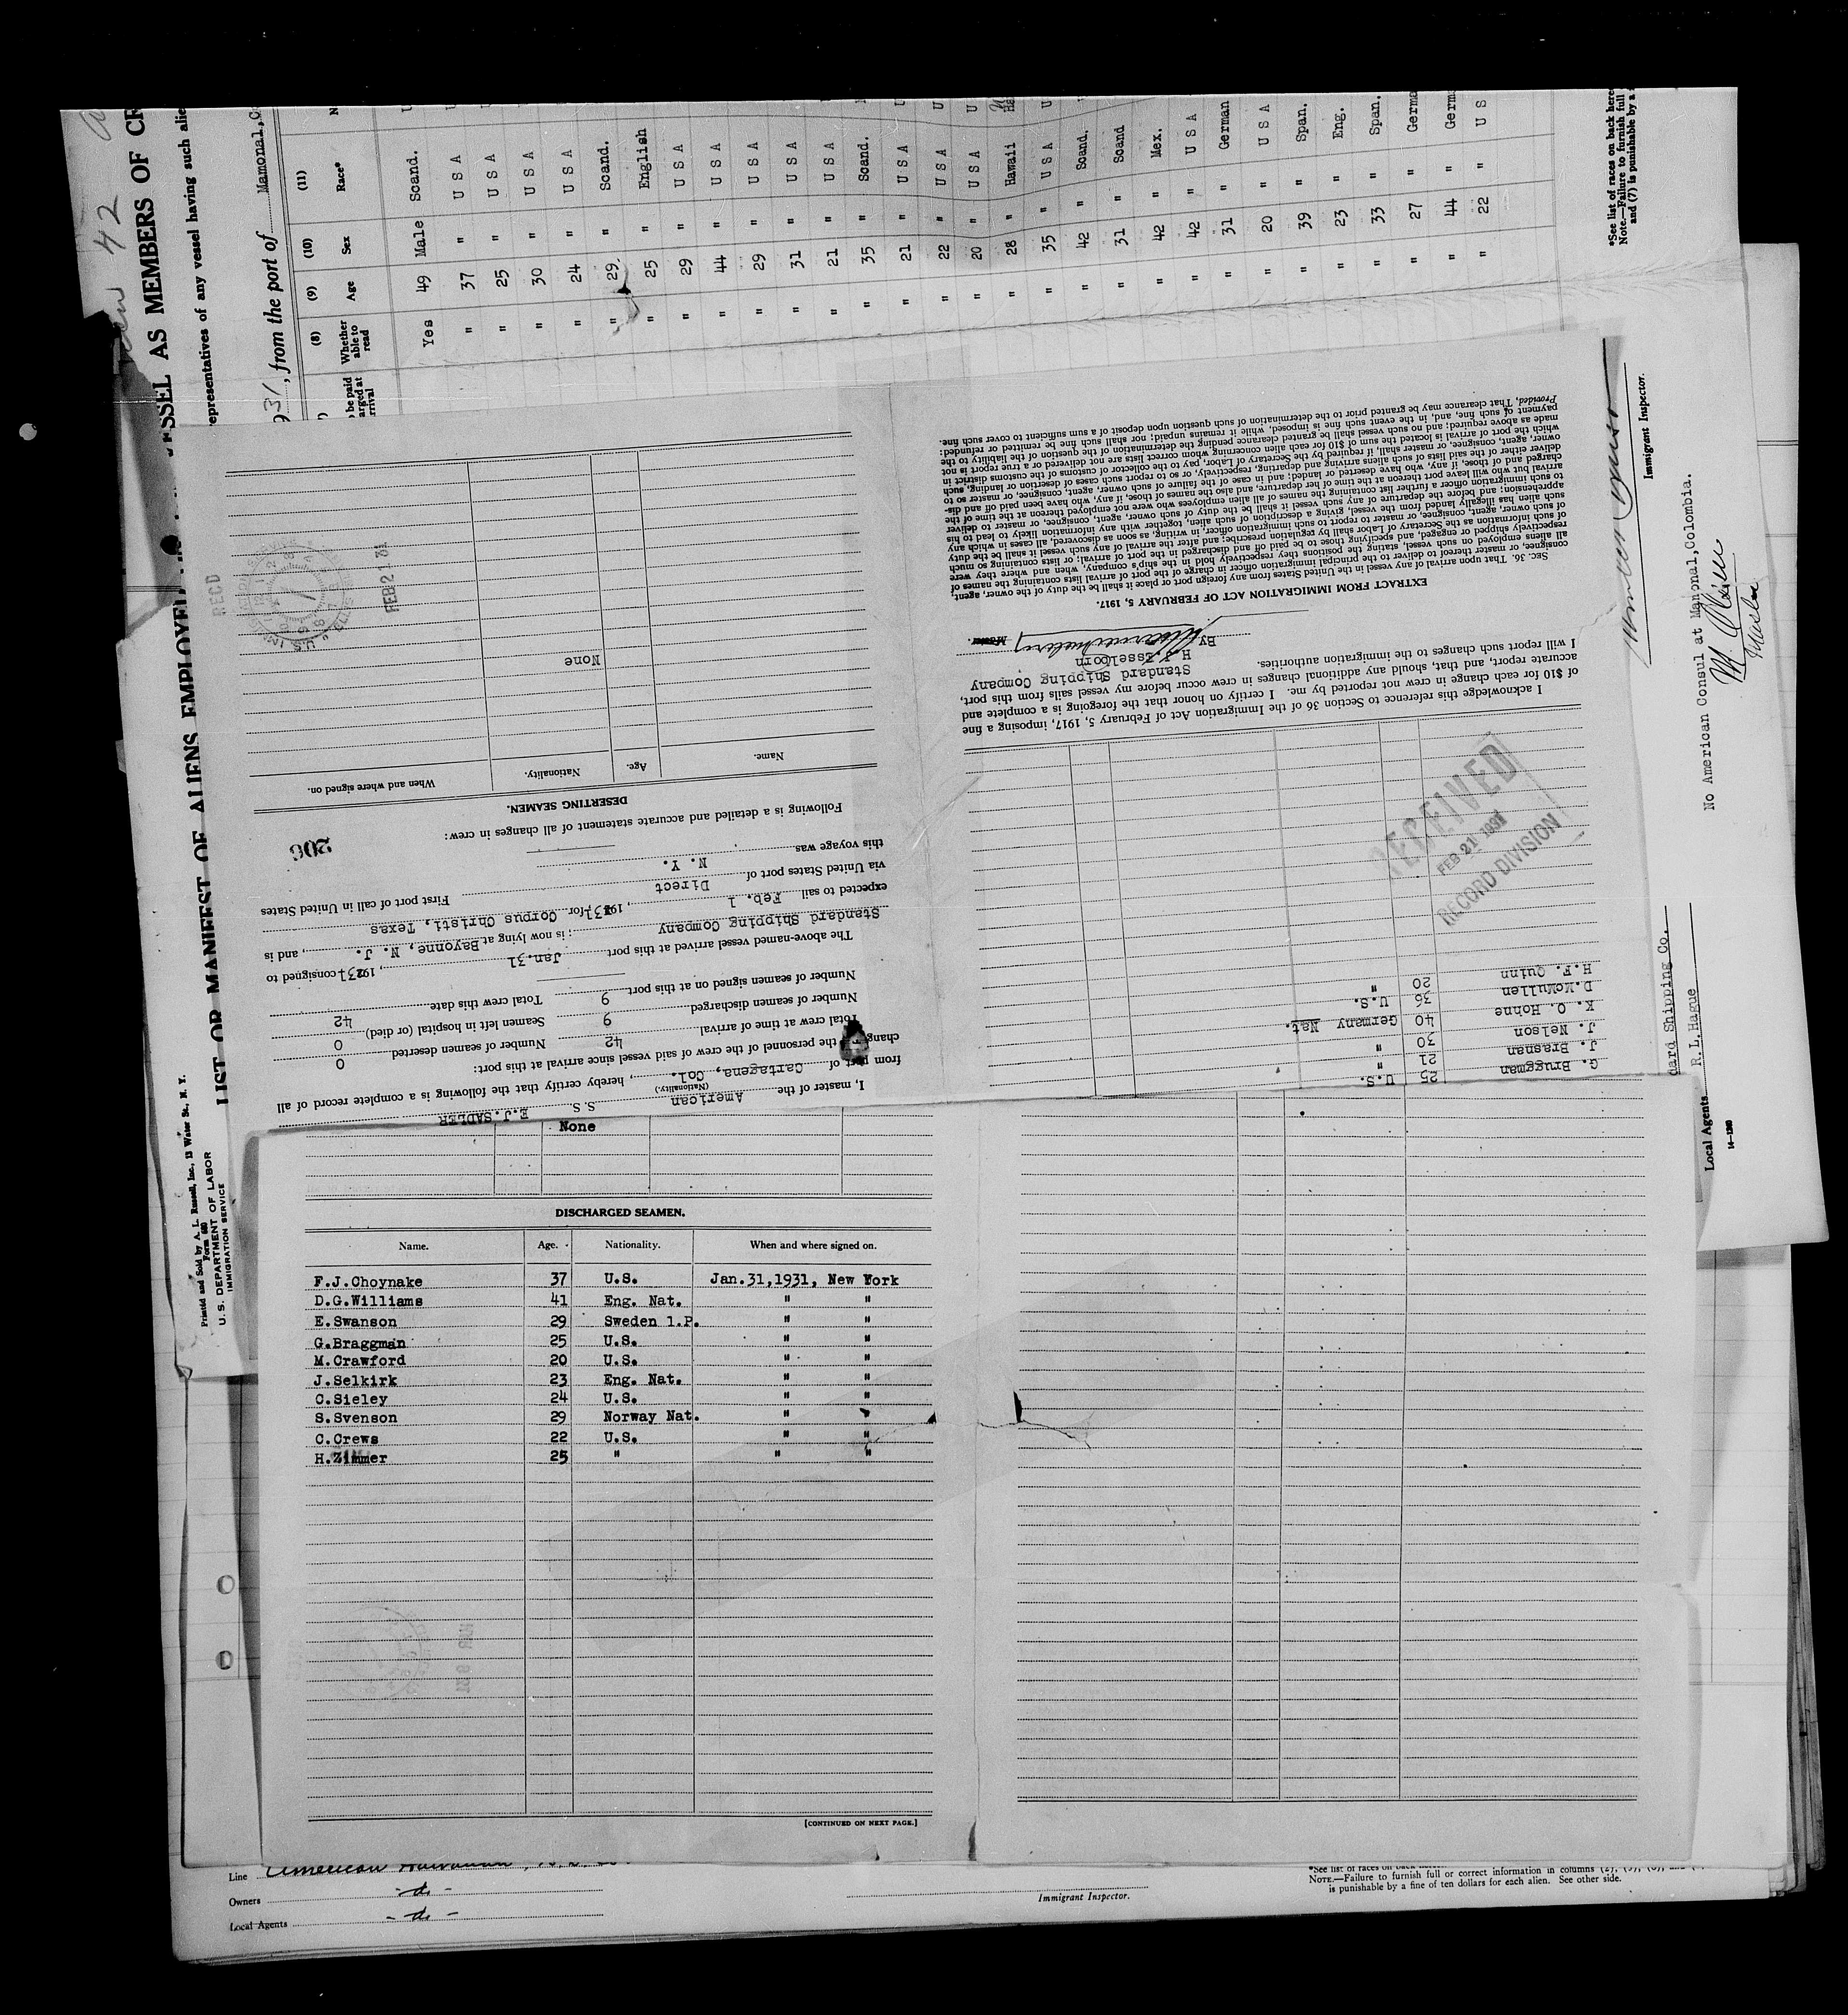 LIST OR MANIFEST OF ALIENS EMPLOYED
ESSEL AS MEMBERS OF CR
42
epresentatives of any vessel having such alie
31, from the port of Mamonal,
(8) (9) (10) (11)
Whether able to read Age Sex Race*
Yes 49 Male Scand.
" 37 " U S A
" 25 " U S A
" 30 " U S A
" 24 " U S A
" 29 " Scand.
" 25 " English
" 29 " U S A
" 44 " U S A
" 29 " U S A
" 31 " U S A
" 21 " U S A
" 35 " Scand.
" 21 " U S A
" 22 " U S A
" 20 " U S A
" 28 " Hawaii
" 35 " U S A
" 42 " Scand.
" 31 " Scand
" 42 " Mex.
" 42 " U S A
" 31 " German
" 20 " U S A
" 39 " Span.
" 23 " Eng.
" 33 " Span.
" 27 " Germ
" 44 " Germ
" 22 " U S
*See list of races on back here
Note.—Failure to furnish full
and (7) is punishable by a
Immigrant Inspector.
No American Consul at Mamonal, Colombia.
dard Shipping Co.
R. L. Hague
Local Agents
14—1240
Printed and Sold by A. L. Russell, Inc., 13 Water St., N. Y.
Form 680
U. S. DEPARTMENT OF LABOR
IMMIGRATION SERVICE
S.S. E.J.SADLER
I, master of the American
(Nationality.)
from port of Cartagena, Col., hereby certify that the following is a complete record of all
change the personnel of the crew of said vessel since arrival at this port:
Total crew at time of arrival 42 Number of seamen deserted 0
Number of seamen discharged 9 Seamen left in hospital (or died) 0
Number of seamen signed on at this port 9 Total crew this date 42
The above-named vessel arrived at this port Jan.31, 1931 consigned to
Standard Shipping Company; is now lying at Bayonne, N. J., and is
expected to sail Feb. 1, 1931, for Corpus Christi, Texas
via United States port of Direct First port of call in United States
this voyage was N. Y.
206
Following is a detailed and accurate statement of all changes in crew:
DESERTING SEAMEN.
Name. Age. Nationality. When and where signed on.
None
REC'D
FEB 21 31
G. Bruggman 25 U.S.
J. Brasnan 21 "
J. Nelson 30 "
K. O. Hohne 40 Germany Nat.
D.McMullen 36 U.S.
H.F. Quinn 20 "
RECEIVED
FEB 21 1931
RECORD DIVISION
I acknowledge this reference to Section 36 of the Immigration Act of February 5, 1917, imposing a fine
of $10 for each change in crew not reported by me. I certify on honor that the foregoing is a complete and
accurate report, and that, should any additional changes in crew occur before my vessel sails from this port,
I will report such changes to the immigration authorities.
Standard Shipping Company
H Y Esselborn
By
Master.
EXTRACT FROM IMMIGRATION ACT OF FEBRUARY 5, 1917.
SEC. 36. That upon arrival of any vessel in the United States from any foreign port or place it shall be the duty of the owner, agent,
consignee, or master thereof to deliver to the principal immigration officer in charge of the port of arrival lists containing the names of
all aliens employed on such vessel, stating the positions they respectively hold in the ship's company, when and where they were
respectively shipped or engaged, and specifying those to be paid off and discharged in the port of arrival; or lists containing so much
of such information as the Secretary of Labor shall by regulation prescribe; and after the arrival of any such vessel it shall be the duty
of such owner, agent, consignee, or master to report to such immigration officer, in writing, as soon as discovered, all cases in which any
such alien has illegally landed from the vessel, giving a description of such alien, together with any information likely to lead to his
apprehension; and before the departure of any such vessel it shall be the duty of such owner, agent, consignee, or master to deliver
to such immigration officer a further list containing the names of all alien employees who were not employed thereon at the time of the
arrival but who will leave port thereon at the time of her departure, and also the names of those, if any, who have been paid off and dis-
charged and of those, if any, who have deserted or landed; and in case of the failure of such owner, agent, consignee, or master so to
deliver either of the said lists of such aliens arriving and departing, respectively, or so to report such cases of desertion or landing, such
owner, agent, consignee, or master shall, if required by the Secretary of Labor, pay to the collector of customs of the customs district in
which the port of arrival is located the sum of $10 for each alien concerning whom correct lists are not delivered or a true report is not
made as above required; and no such vessel shall be granted clearance pending the determination of the question of the liability to the
payment of such fine, and, in the event such fine is imposed, while it remains unpaid; nor shall such fine be remitted or refunded:
Provided, That clearance may be granted prior to the determination of such question upon deposit of a sum sufficient to cover such fine.
None
DISCHARGED SEAMEN.
Name. Age. Nationality. When and where signed on.
F.J.Choynake 37 U.S. Jan.31,1931, New York
D.G.Williams 41 Eng. Nat. " "
E.Swanson 29 Sweden 1.P. " "
G.Braggman 25 U.S. " "
M.Crawford 20 U.S. " "
J.Selkirk 23 Eng. Nat. " "
C.Sieley 24 U.S. " "
S.Svenson 29 Norway Nat. " "
C.Crews 22 U.S. " "
H.Zimmer 25 " " "
[CONTINUED ON NEXT PAGE.]
Line American Hawaiian
Owners - do -
Local Agents - do -
Immigrant Inspector.
NOTE.—Failure to furnish full or correct information in columns
is punishable by a fine of ten dollars for each alien. See other side.